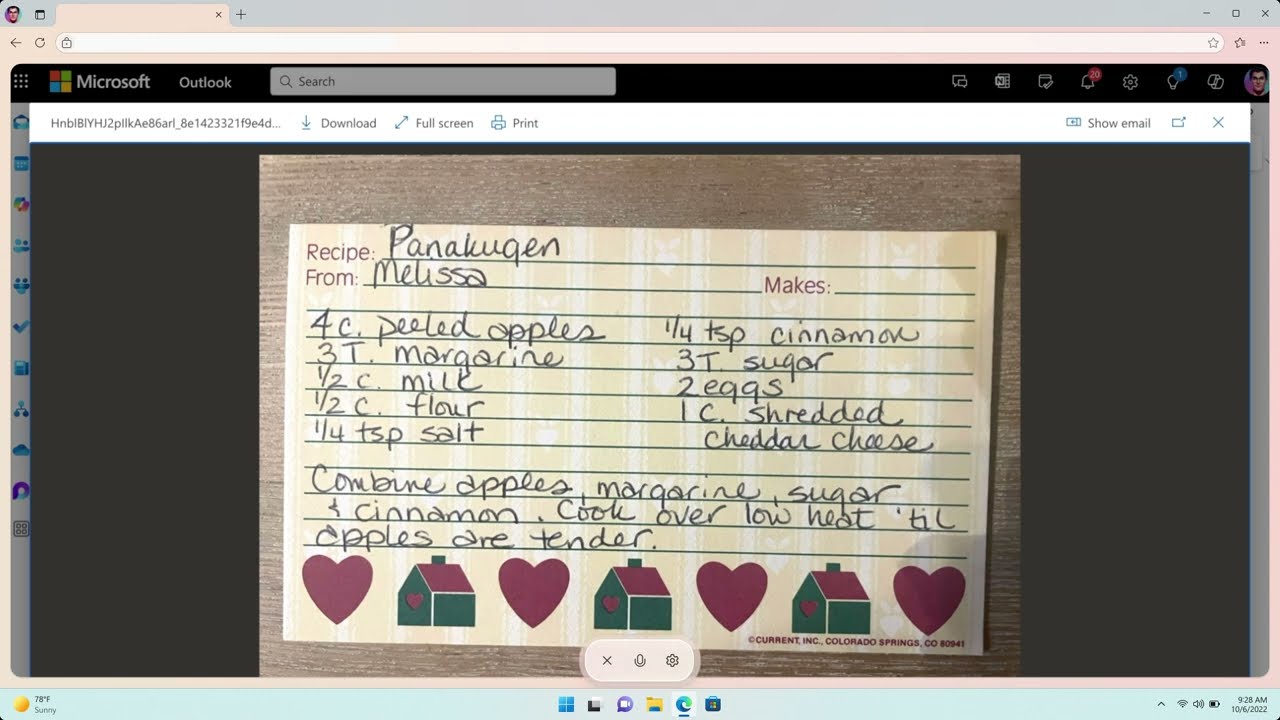 Microsoft Outlook Search 20 1
HnblBlYHJ2pIlkAe86arl_8e1423321f9e4d... Download Full screen Print Show email
Recipe: Panakugen
From: Melissa Makes:
4 c. peeled apples 1/4 tsp cinnamon
3 T. margarine 3 T. sugar
1/2 c. milk 2 eggs
1/2 c. flour 1 c. shredded
1/4 tsp salt cheddar cheese
Combine apples, margarine, sugar
& cinnamon. Cook over low heat 'til
apples are tender.
©CURRENT, INC., COLORADO SPRINGS, CO 80941
78°F
Sunny
9:28 AM
10/6/2022